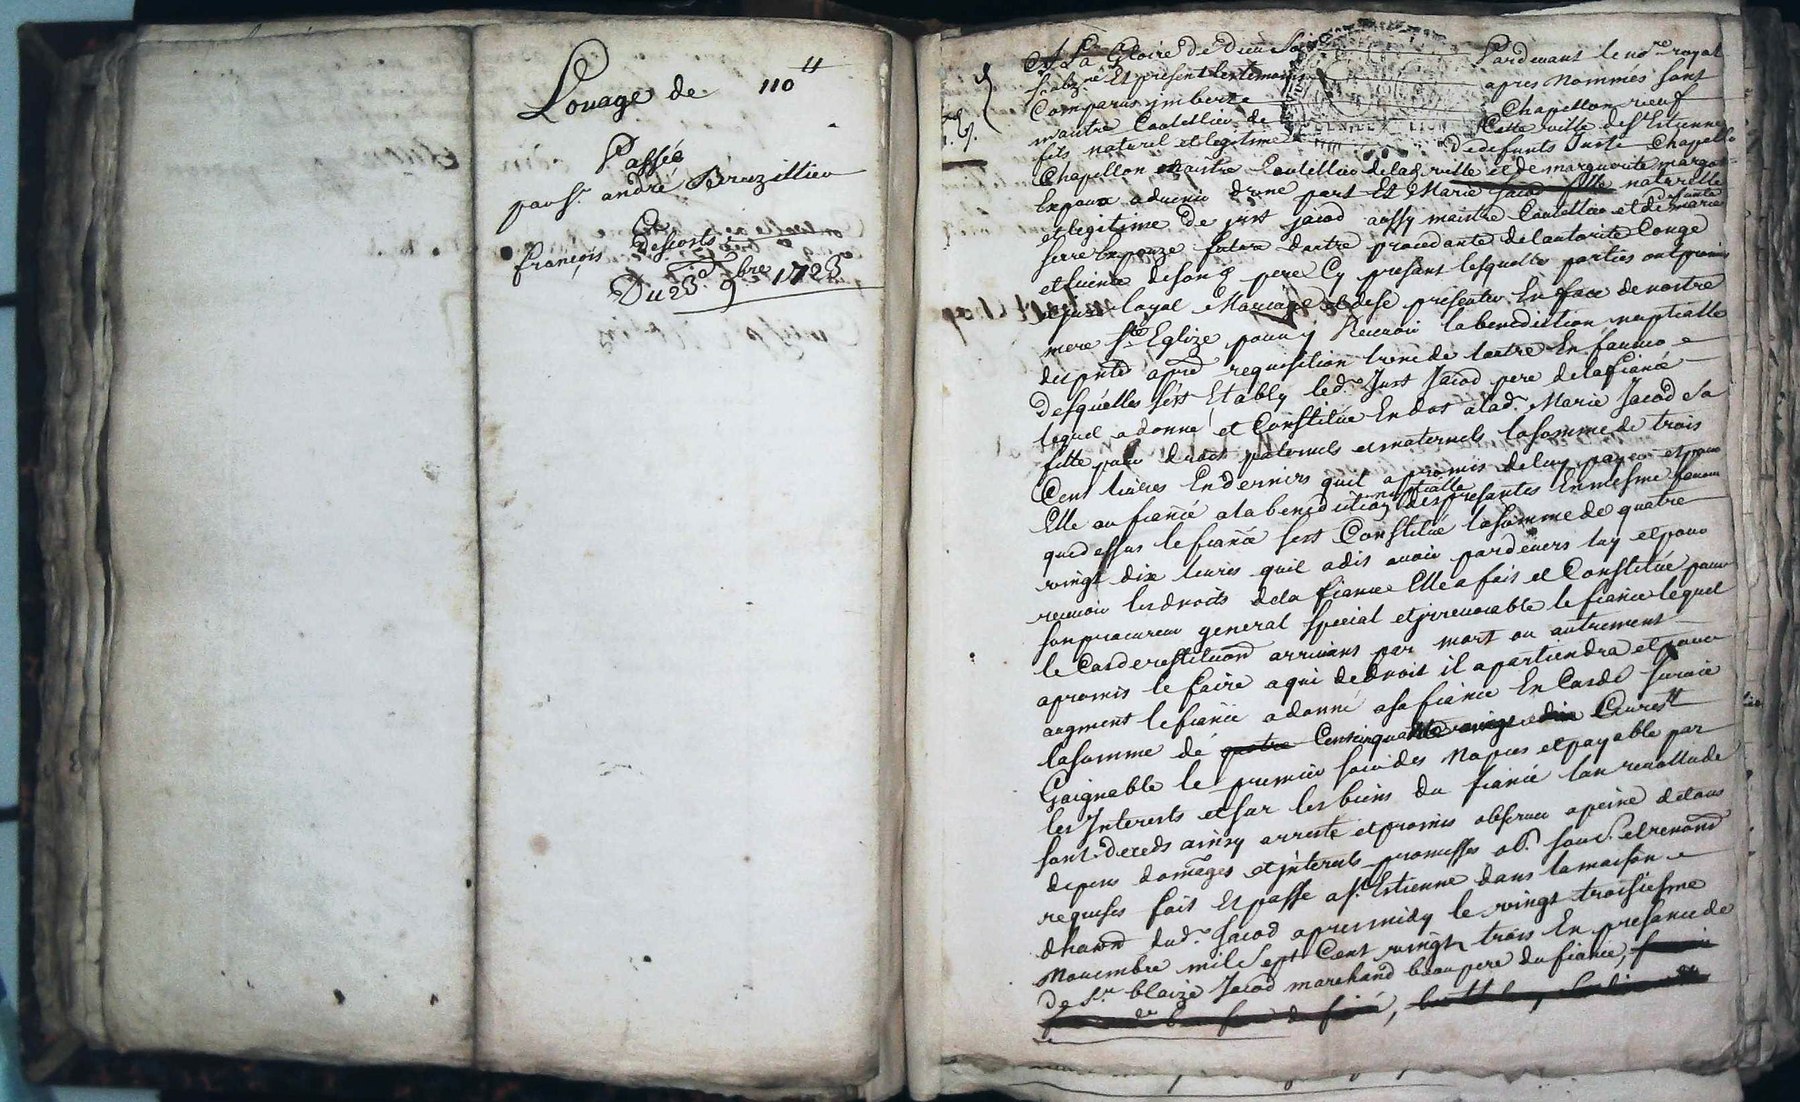 Louage de 110 ll
Passée
par Sr. andré
Et
françois Desjorts
Du 23e 9bre 1723
A La Gloire de Dieu Soit Pardevant le nore royal
Et présent les temoins apres Nommes sont
Comparus ymberte Chapellon veuf
maitre Coutellier de Cette ville de St Estienne
fils naturel et legitime de defunts Juste Chapello
Chapellon maitre Coutellier de lad. ville et de marguerite
Expoux advenir dune part Et Marie Jacod fille naturelle
et legitime de just Jacod aussy maitre Coutellier et de Marie
serre Expouze future dautre procedante de lautorité Conge
et Licence de son d. pere Cy present lesquelles parties ont promis
loyal Mariage et de se presenter En face de nostre
mere Ste Eglize pour y Recevoir la benediction nuptialle
apres requisition lune de lautre En faveur
desquelles sest Etably led. Just Jacod pere de la fiancé
lequel a donné et Constitué En dot a lad. Marie Jacod Sa
fille pour droits paternels et maternels la somme de trois
Cent livres En derniers quil a promis de luy payer et pour
Elle au fiancé a la benediction nuptialle des presantes En mesme faveur
que dessus le fiancé sest Constitué la somme de quatre
vingt dix livres quil a dit avoir pardevers luy et pour
recevoir les droits de la fiancé Elle a fait et Constitué pour
son procureur general special et jrrevocable le fiancé lequel
le Cas de restitution arrivant par mort ou autrement
a promis le faire a qui de droit il apartiendra et pour
augment le fiancé a donné a sa fiancée En Cas de survie
la somme de quatre Cent cinquante livres
Gaignable le premier jour des Nopces et payable par
les Jnterests et sur les biens du fiancé lan revollu de
son deceds ainsy arresté et promis observer a peine de tous
depens domages et jnterests promesses ob. soub. et renond
requises fait Et passe a St Estienne dans la maison
dhaond dud. Jacod apres midy le vingt troisiesme
Novembre mil Sept Cent vingt trois En presance de
de Sr. blaize Jacod marchand beau pere du fiancé,